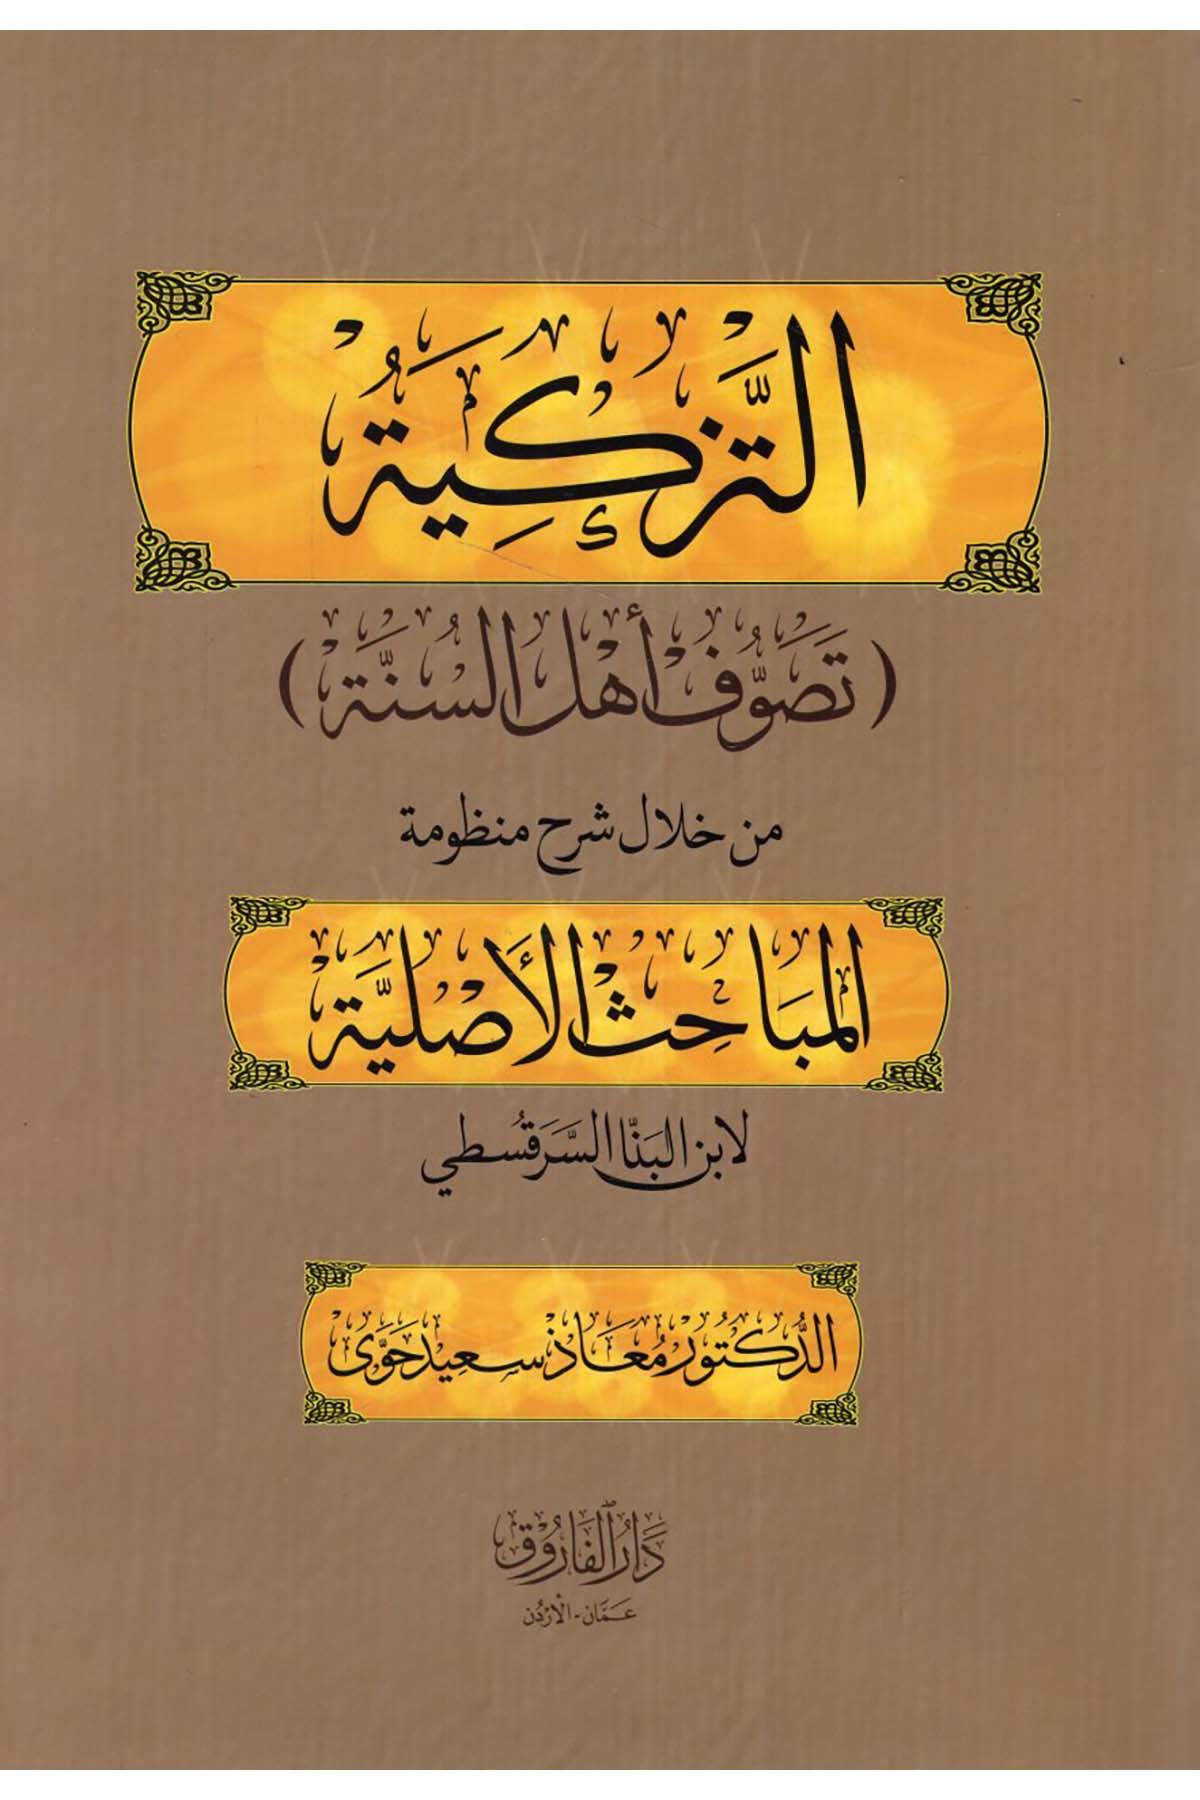 التَّزْكِيَةُ
(تَصَوُّف أهل السُنَّة)
من خلال شرح منظومة
المَبَاحِث الأَصْلِيَّة
لابن البَنَّا السَّرَقُسطي
الدُّكتُور مُعَاذ سعيد حَوَّى
دَارُ الفَارُوق
عَمَّان - الأرْدُن